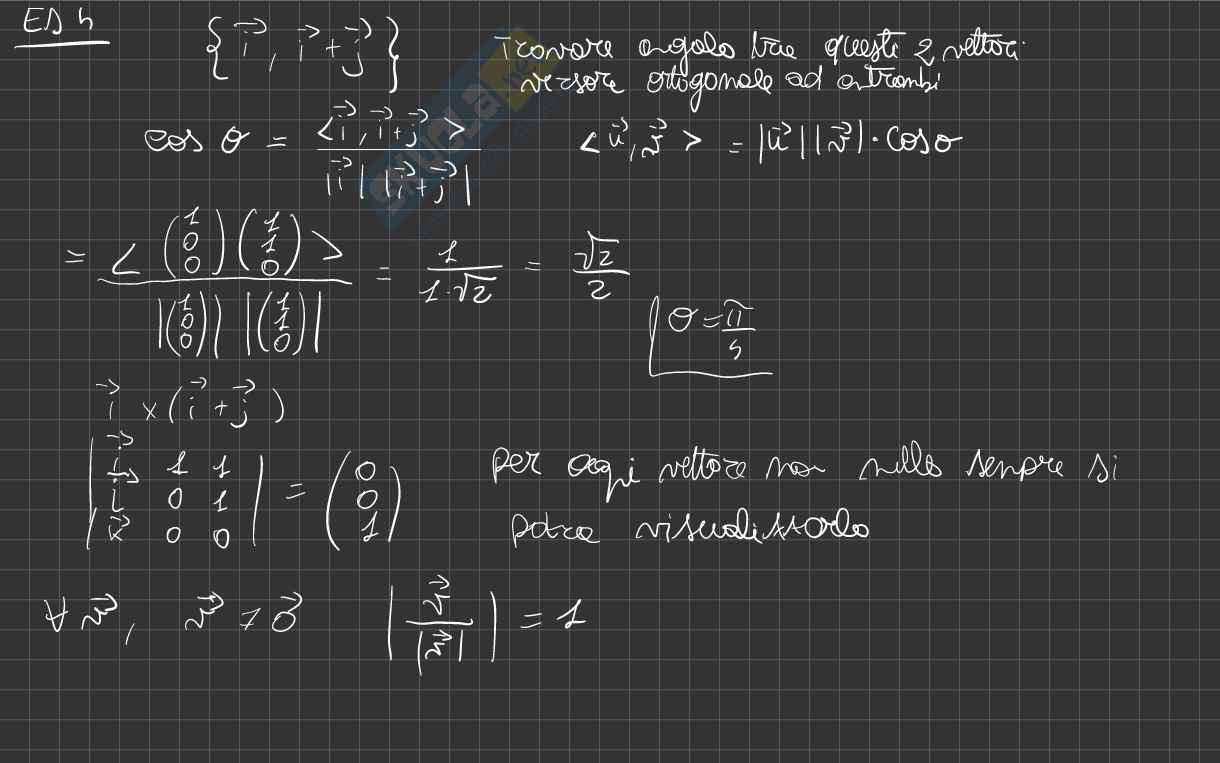 ES 4
{ i⃗ , i⃗ + j⃗ } Trovare angolo tra questi 2 vettori
versore ortogonale ad entrambi
cos θ = <i⃗, i⃗+j⃗> / |i⃗| |i⃗+j⃗| <u⃗,v⃗> = |u⃗||v⃗|·cosθ
= < (1 0 0) (1 1 0) > / |(1 0 0)| |(1 1 0)| = 1 / 1·√2 = √2 / 2
θ = π / 4
i⃗ × (i⃗ + j⃗)
| i⃗ 1 1 | = (0 0 1) per ogni vettore non nullo sempre si
| j⃗ 0 1 |
| k⃗ 0 0 | potra
∀ v⃗, v⃗ ≠ 0⃗ | v⃗ / |v⃗| | = 1